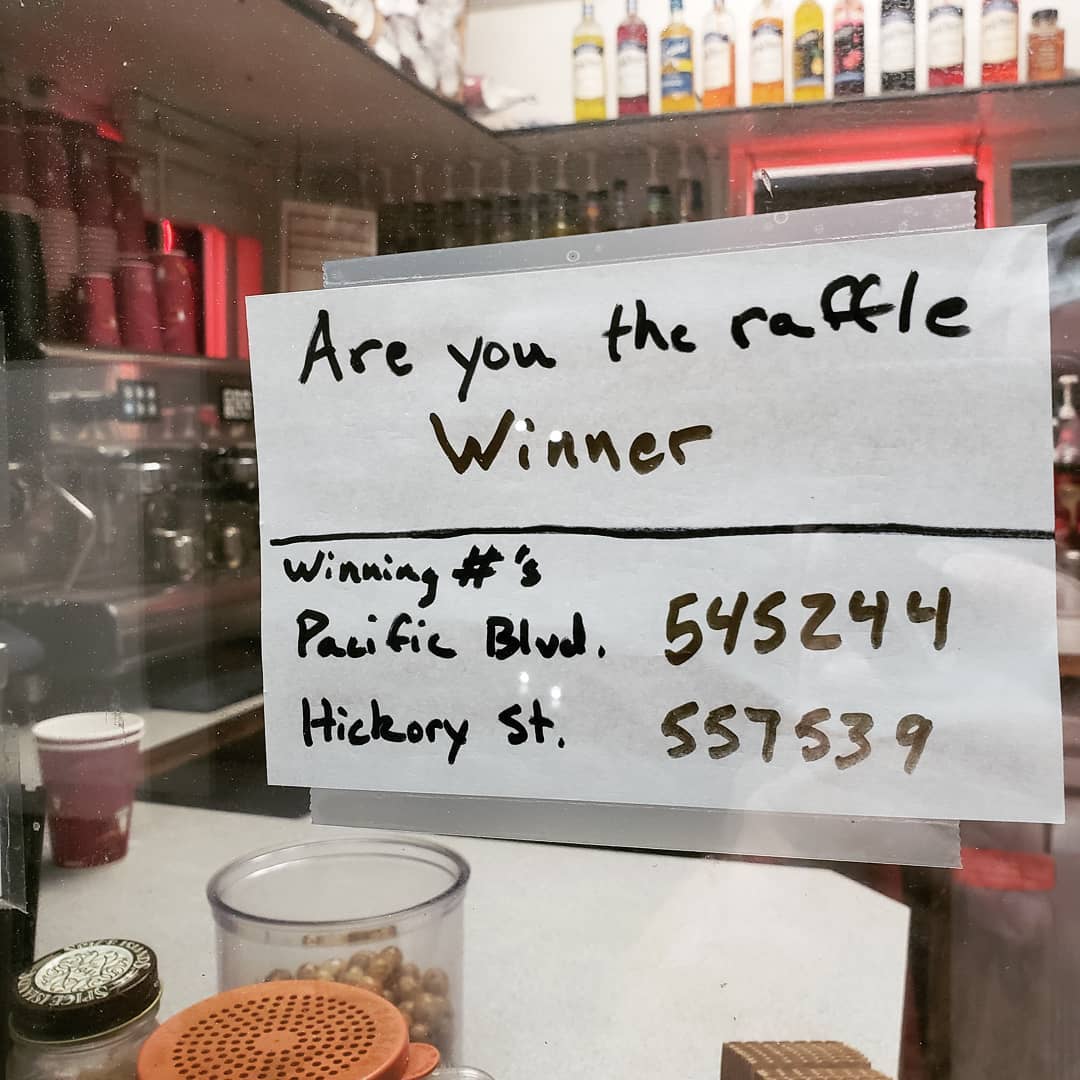 Are you the raffle
Winner
Winning #'s
Pacific Blvd. 545244
Hickory St. 557539
SPICE ISLANDS